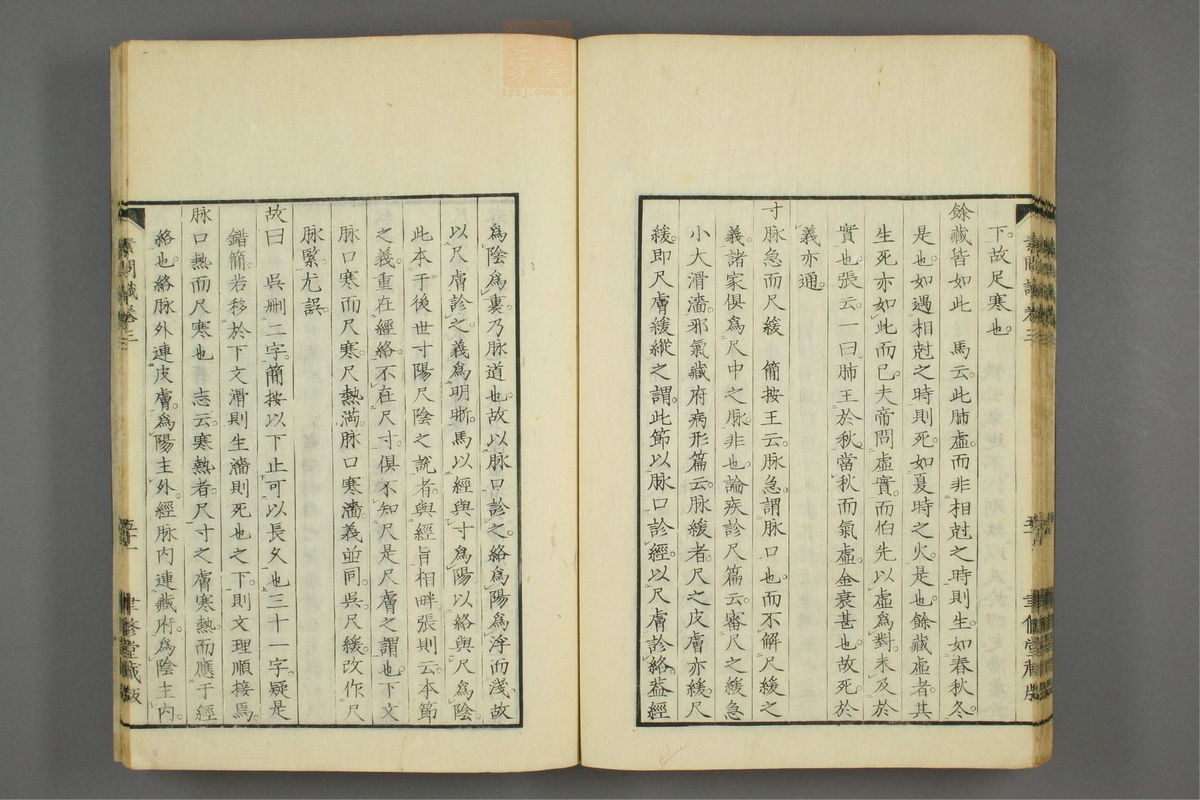 下。故足寒也。
餘藏皆如此　馬云。此肺虛。而非相尅之時則生。如春秋冬。
是也。如遇相尅之時則死。如夏時之火。是也。餘藏虛者。其
生死亦如此而已。夫帝問虛實。而伯先以虛爲對。未及於
實也。張云。一曰肺王於秋。當秋而氣虛。金衰甚也。故死。於
義亦通。
寸脉急而尺緩　簡按王云。脉急。謂脉口也。而不解尺緩之
義。諸家俱爲尺中之脉。非也。論疾診尺篇云。審尺之緩急
小大滑濇。邪氣藏府病形篇云。脉緩者。尺之皮膚亦緩。尺
緩。即尺膚緩縱之謂。此節以脉口診經。以尺膚診絡。葢經
爲陰爲裏。乃脉道也。故以脉口診之。絡爲陽爲浮而淺。故
以尺膚診之。義爲明晰。馬以經與寸爲陽。以絡與尺爲陰。
此本于後世寸陽尺陰之說者。與經旨相畔。張則云。本節
之義。重在經絡。不在尺寸。俱不知尺是尺膚之謂也。下文
脉口寒而尺寒。尺熱滿。脉口寒濇。義並同。吳尺緩。改作尺
脉緊。尤誤。
故曰　吳刪二字。簡按以下止可以長久也三十一字。疑是
錯簡。若移於下文滑則生濇則死也之下。則文理順接焉。
脉口熱而尺寒也　志云。寒熱者。尺寸之膚寒熱。而應于經
絡也。絡脉外連皮膚。爲陽主外。經脉內連藏府。爲陰主內。
素問識卷三
聿修堂藏版